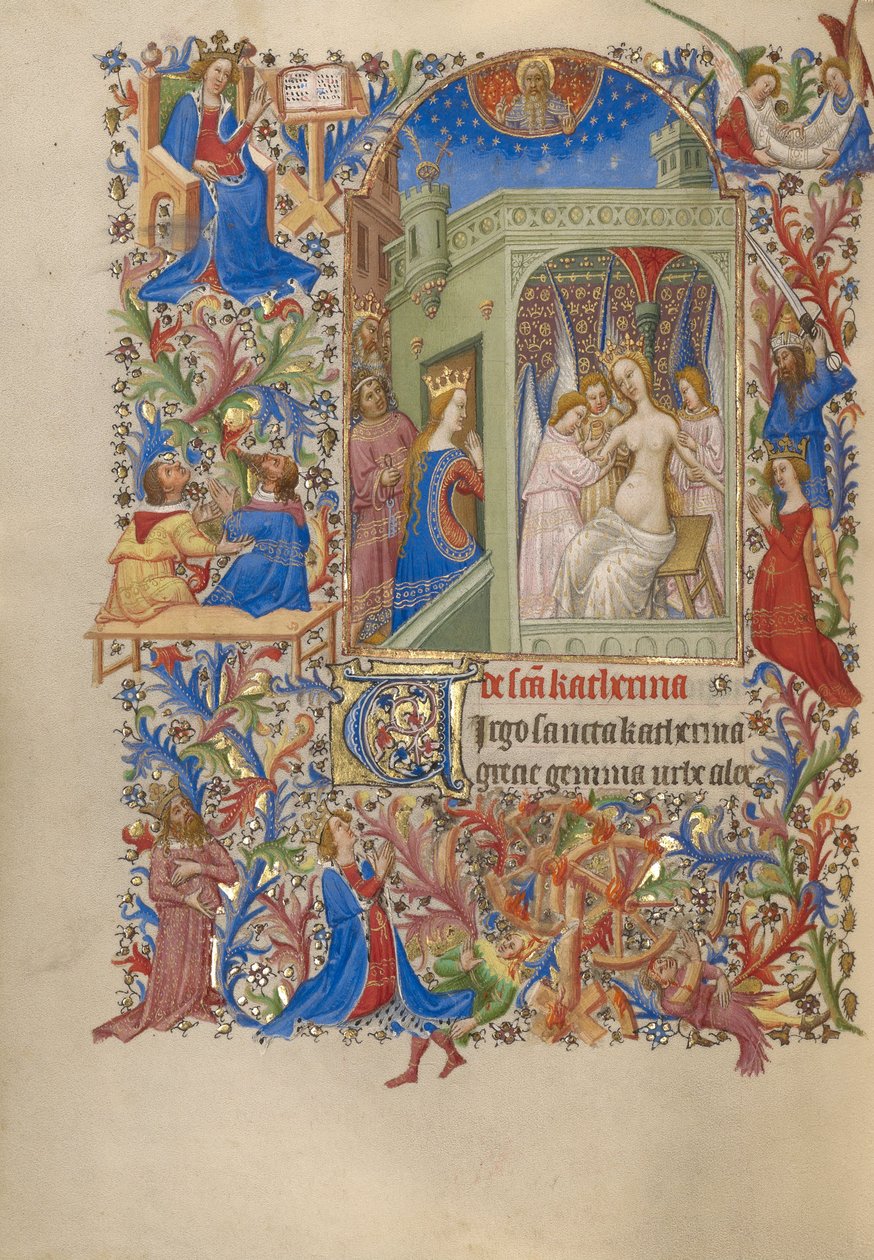 De scā katherina
Virgo sancta katherina
grecie gemma urbe alex